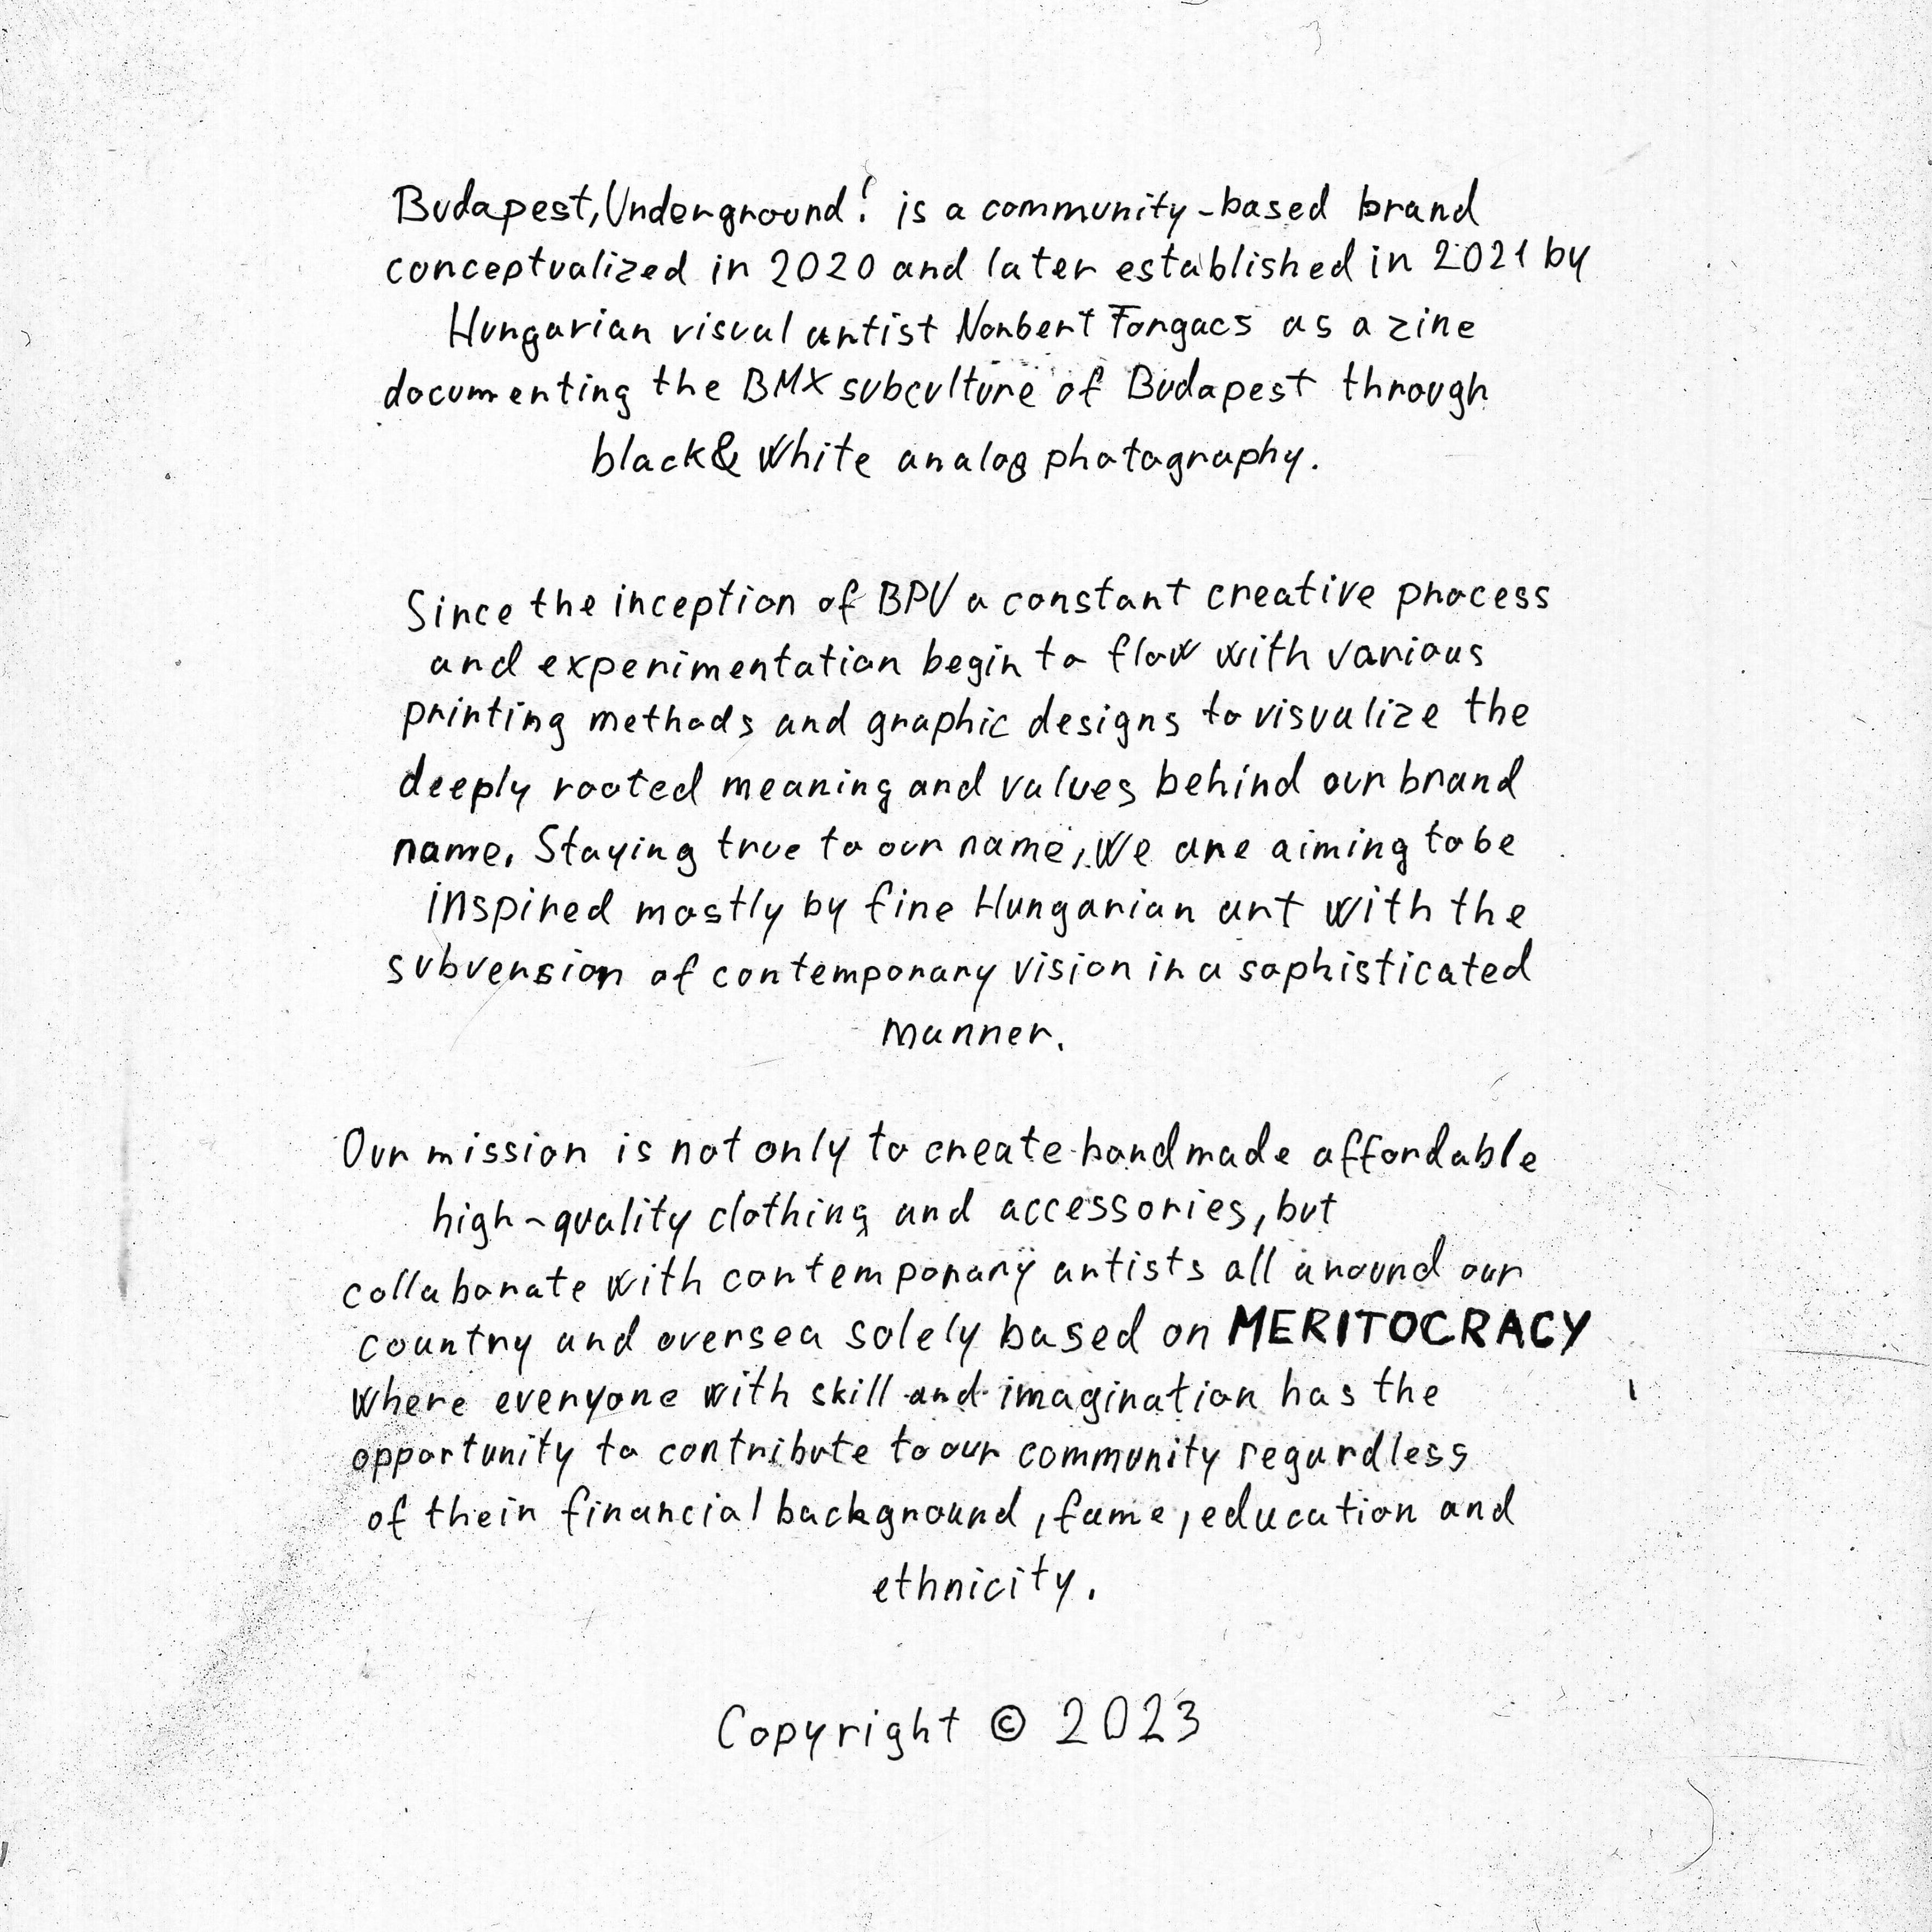 Budapest,Underground! is a community-based brand
conceptualized in 2020 and later established in 2021 by
Hungarian visual artist Norbert Forgacs as a zine
documenting the BMX subculture of Budapest through
black& White analog photography.
Since the inception of BPU a constant creative process
and experimentation begin to flow with various
printing methods and graphic designs to visualize the
deeply rooted meaning and values behind our brand
name. Staying true to our name, We are aiming to be
inspired mostly by fine Hungarian art with the
subversion of contemporary vision in a sophisticated
manner.
Our mission is not only to create handmade affordable
high-quality clothing and accessories, but
collaborate with contemporary artists all around our
country and oversea solely based on MERITOCRACY
Where everyone with skill and imagination has the
opportunity to contribute to our community regardless
of their financial background, fame, education and
ethnicity.
Copyright © 2023